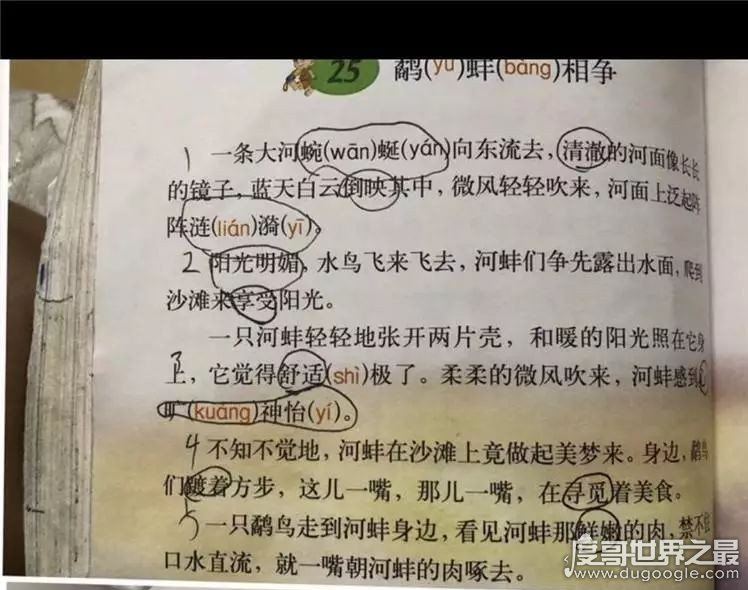 25 鹬(yù)蚌(bàng)相争
1 一条大河蜿(wān)蜒(yán)向东流去，清澈的河面像长长
的镜子，蓝天白云倒映其中，微风轻轻吹来，河面上泛起阵
阵涟(lián)漪(yī)。
2 阳光明媚，水鸟飞来飞去，河蚌们争先露出水面，爬到
沙滩来享受阳光。
一只河蚌轻轻地张开两片壳，和暖的阳光照在它身
3 上，它觉得舒适(shì)极了。柔柔的微风吹来，河蚌感到心
旷(kuàng)神怡(yí)。
4 不知不觉地，河蚌在沙滩上竟做起美梦来。身边，鹬鸟
们踱着方步，这儿一嘴，那儿一嘴，在寻觅着美食。
5 一只鹬鸟走到河蚌身边，看见河蚌那鲜嫩的肉，禁不住
口水直流，就一嘴朝河蚌的肉啄去。
度哥世界之最
www.dugoogle.com